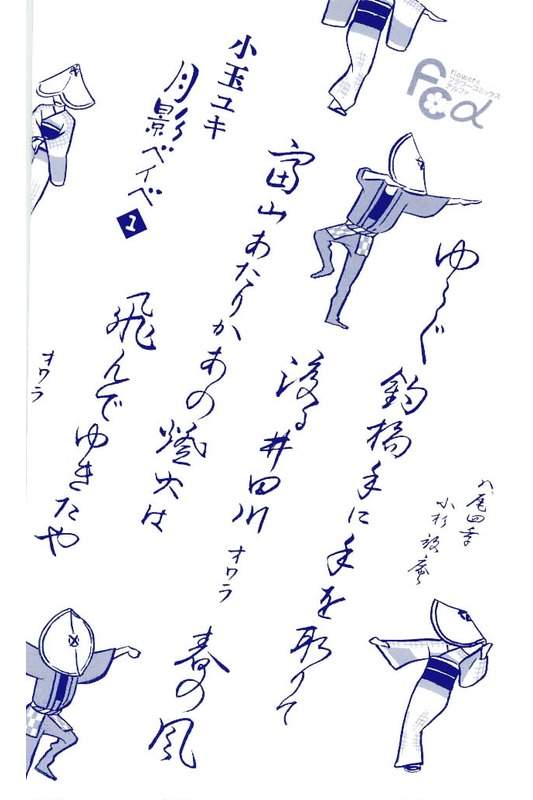 flowers
フラワーコミックス
アルファ
FCα
小玉ユキ
月影ベイベ 1
八尾四季
小杉放庵
ゆらぐ 釣橋手に手を取りて
渡る井田川 オワラ 春の風
富山あたりかあの燈火は
飛んでゆきたや オワラ